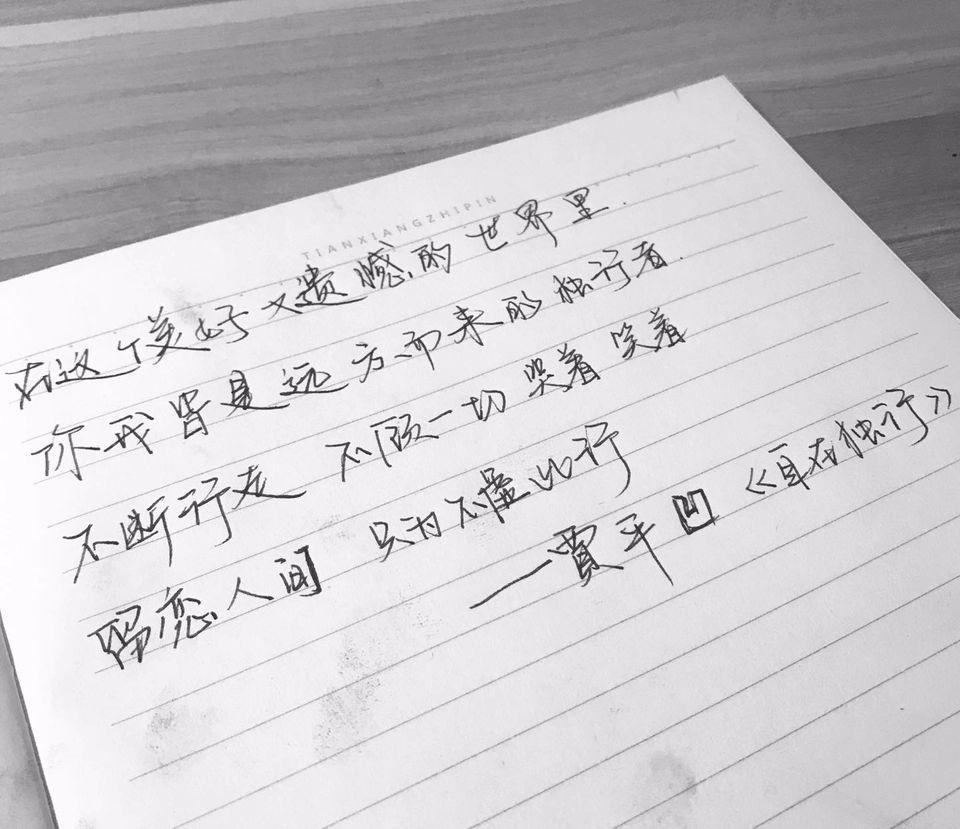 TIANXIANGZHIPIN
在这个美好又遗憾的世界里.
你我皆是远方而来的独行者.
不断行走 不顾一切 哭着 笑着
留恋人间 只为不虚此行
——贾平凹 《自在独行》